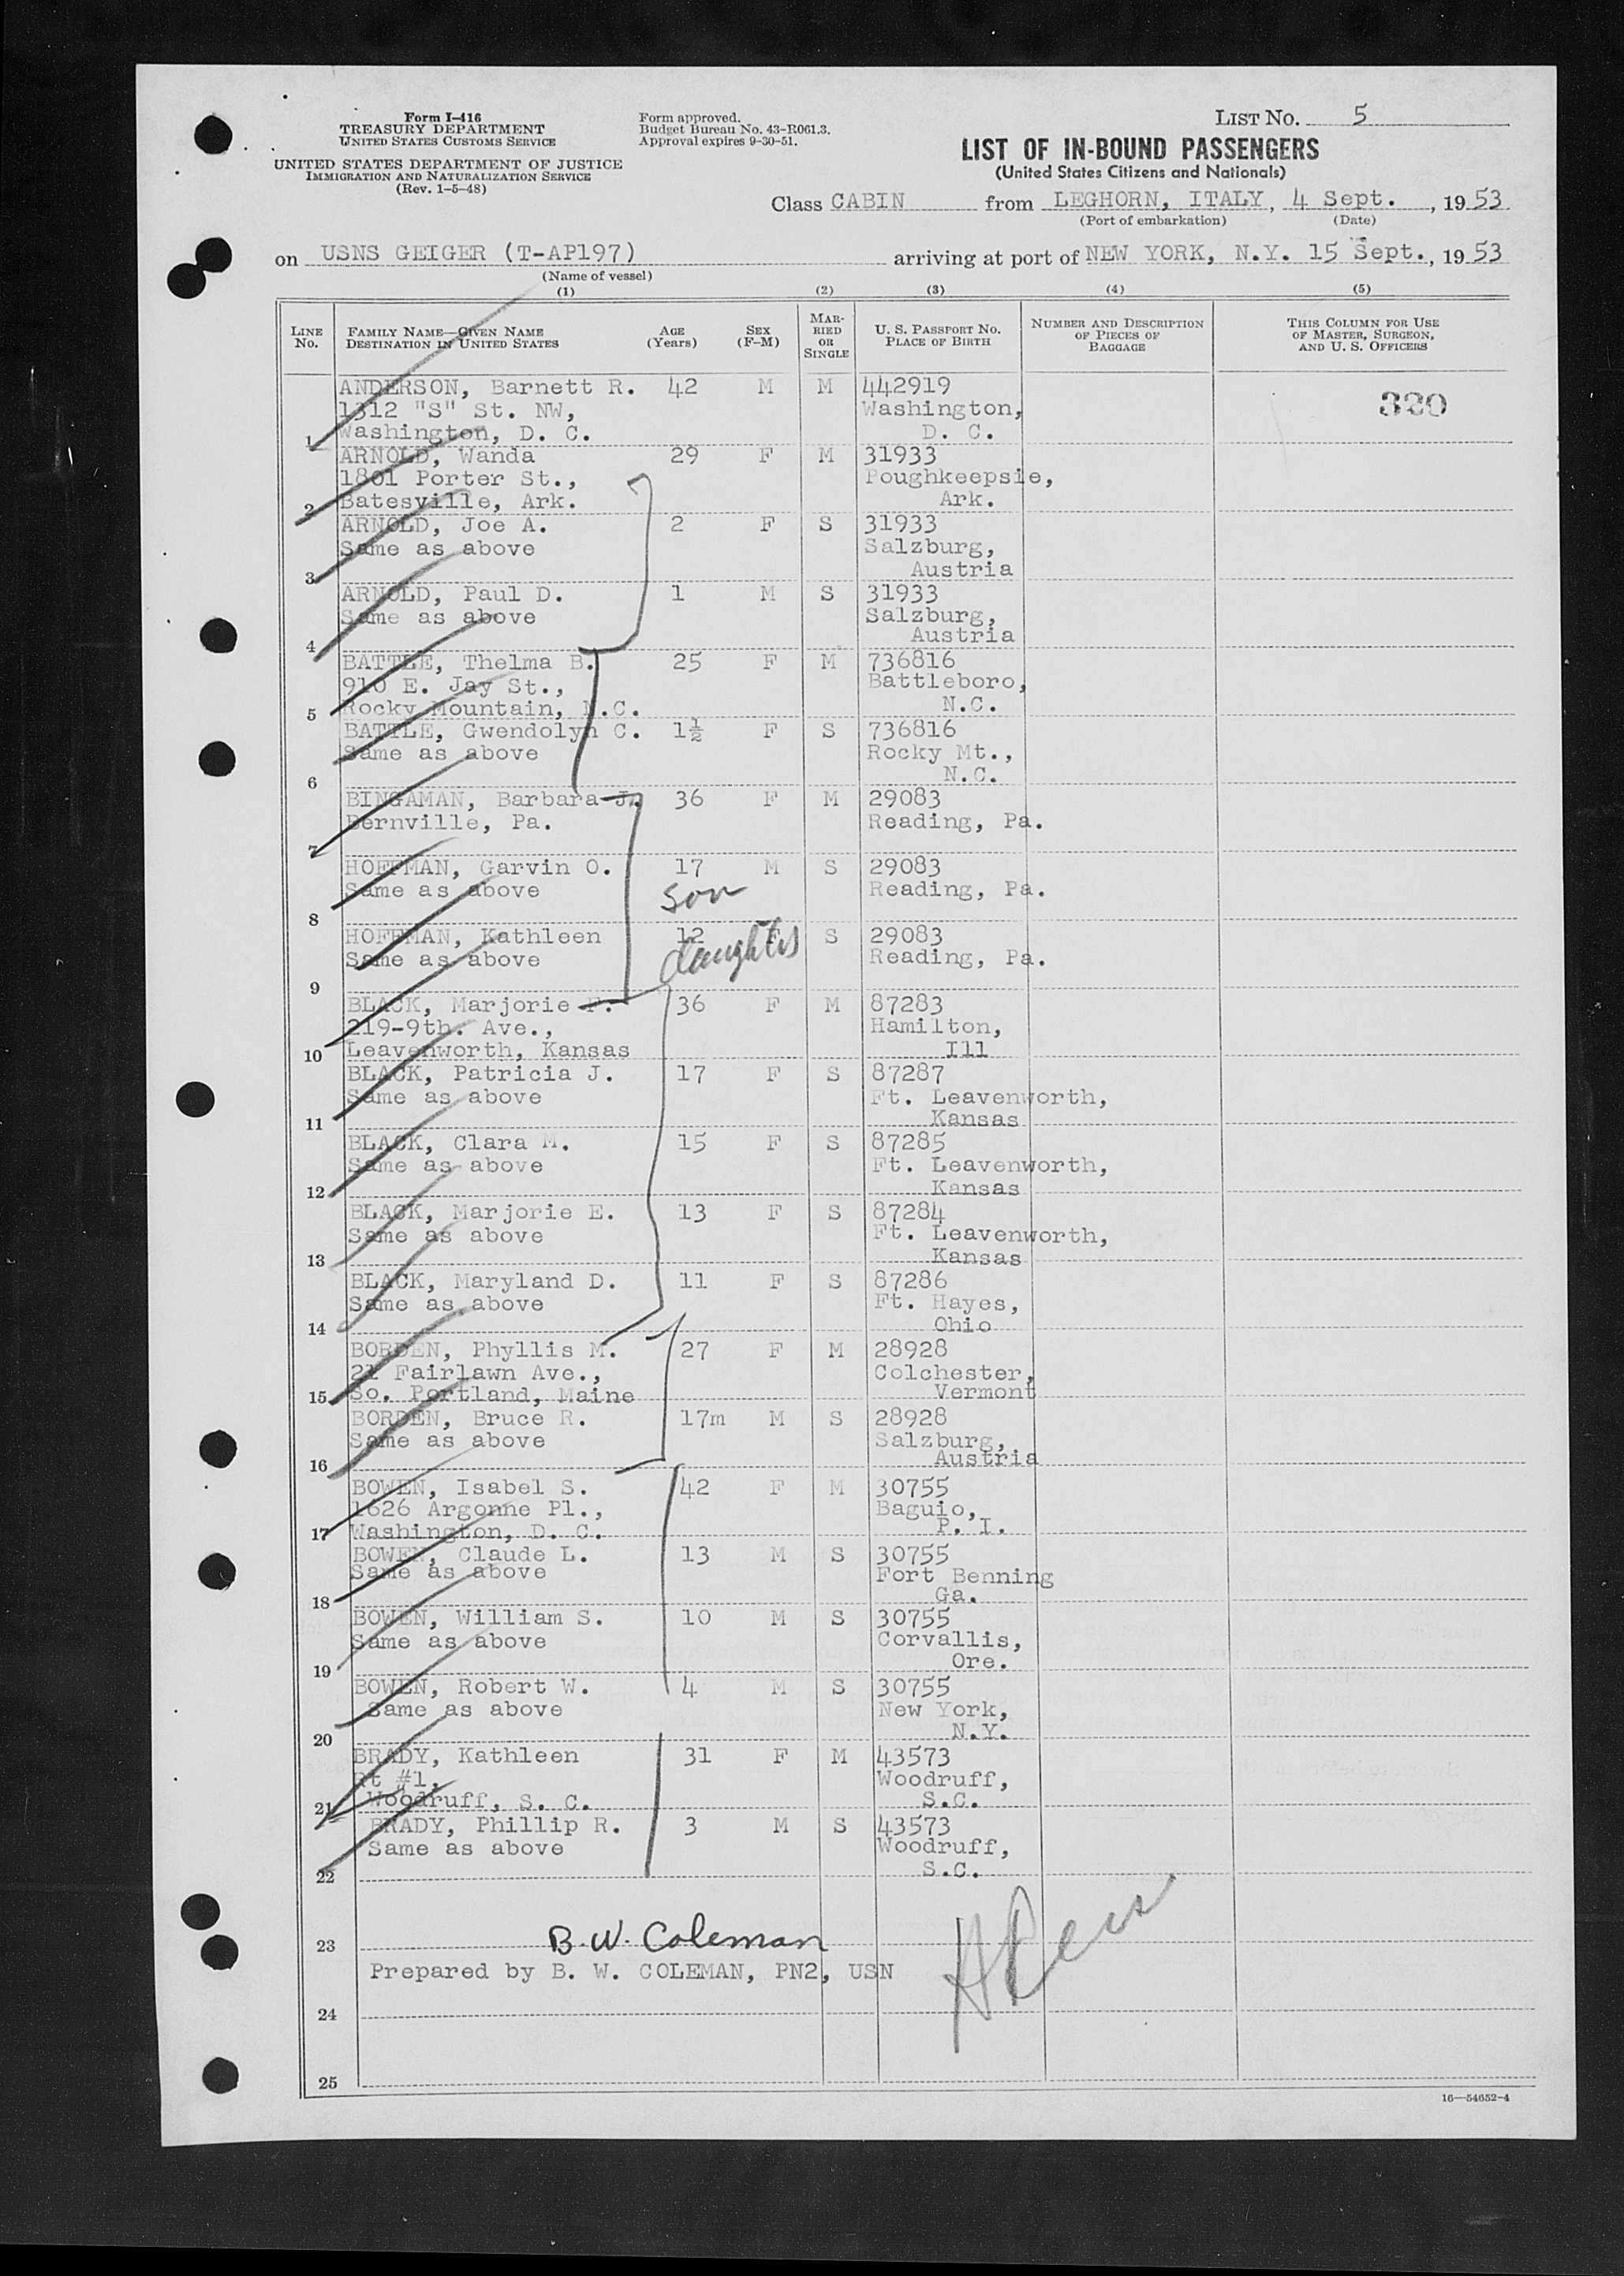 Form I-416
TREASURY DEPARTMENT
UNITED STATES CUSTOMS SERVICE
UNITED STATES DEPARTMENT OF JUSTICE
IMMIGRATION AND NATURALIZATION SERVICE
(Rev. 1-5-48)
Form approved.
Budget Bureau No. 43-R061.3.
Approval expires 9-30-51.
LIST NO. 5
LIST OF IN-BOUND PASSENGERS
(United States Citizens and Nationals)
Class CABIN from LEGHORN, ITALY, 4 Sept., 1953
(Port of embarkation) (Date)
on USNS GEIGER (T-AP197) arriving at port of NEW YORK, N.Y. 15 Sept., 1953
(Name of vessel)
(1) (2) (3) (4) (5)
LINE No.
FAMILY NAME—GIVEN NAME
DESTINATION IN UNITED STATES
AGE (Years)
SEX (F-M)
MARRIED OR SINGLE
U. S. PASSPORT NO.
PLACE OF BIRTH
NUMBER AND DESCRIPTION OF PIECES OF BAGGAGE
THIS COLUMN FOR USE OF MASTER, SURGEON, AND U. S. OFFICERS
ANDERSON, Barnett R. 42 M M 442919
1312 "S" St. NW, Washington,
1 Washington, D. C. D. C.
320
ARNOLD, Wanda 29 F M 31933
1801 Porter St., Poughkeepsie,
2 Batesville, Ark. Ark.
ARNOLD, Joe A. 2 F S 31933
Same as above Salzburg,
3 Austria
ARNOLD, Paul D. 1 M S 31933
Same as above Salzburg,
4 Austria
BATTLE, Thelma B. 25 F M 736816
910 E. Jay St., Battleboro,
5 Rocky Mountain, N.C. N.C.
BATTLE, Gwendolyn C. 1½ F S 736816
Same as above Rocky Mt.,
6 N.C.
BINGAMAN, Barbara J. 36 F M 29083
Bernville, Pa. Reading, Pa.
7
HOFFMAN, Garvin O. 17 M S 29083
Same as above son Reading, Pa.
8
HOFFMAN, Kathleen 12 F S 29083
Same as above daughter Reading, Pa.
9
BLACK, Marjorie F. 36 F M 87283
219-9th. Ave., Hamilton,
10 Leavenworth, Kansas Ill
BLACK, Patricia J. 17 F S 87287
Same as above Ft. Leavenworth,
11 Kansas
BLACK, Clara M. 15 F S 87285
Same as above Ft. Leavenworth,
12 Kansas
BLACK, Marjorie E. 13 F S 87284
Same as above Ft. Leavenworth,
13 Kansas
BLACK, Maryland D. 11 F S 87286
Same as above Ft. Hayes,
14 Ohio
BORDEN, Phyllis M. 27 F M 28928
21 Fairlawn Ave., Colchester,
15 So. Portland, Maine Vermont
BORDEN, Bruce R. 17m M S 28928
Same as above Salzburg,
16 Austria
BOWEN, Isabel S. 42 F M 30755
1626 Argonne Pl., Baguio,
17 Washington, D. C. P. I.
BOWEN, Claude L. 13 M S 30755
Same as above Fort Benning
18 Ga.
BOWEN, William S. 10 M S 30755
Same as above Corvallis,
19 Ore.
BOWEN, Robert W. 4 M S 30755
Same as above New York,
20 N.Y.
BRADY, Kathleen 31 F M 43573
Rt #1, Woodruff,
21 Woodruff, S. C. S.C.
BRADY, Phillip R. 3 M S 43573
Same as above Woodruff,
22 S.C.
23 B.W. Coleman
Prepared by B. W. COLEMAN, PN2, USN
24
25
16—54652-4